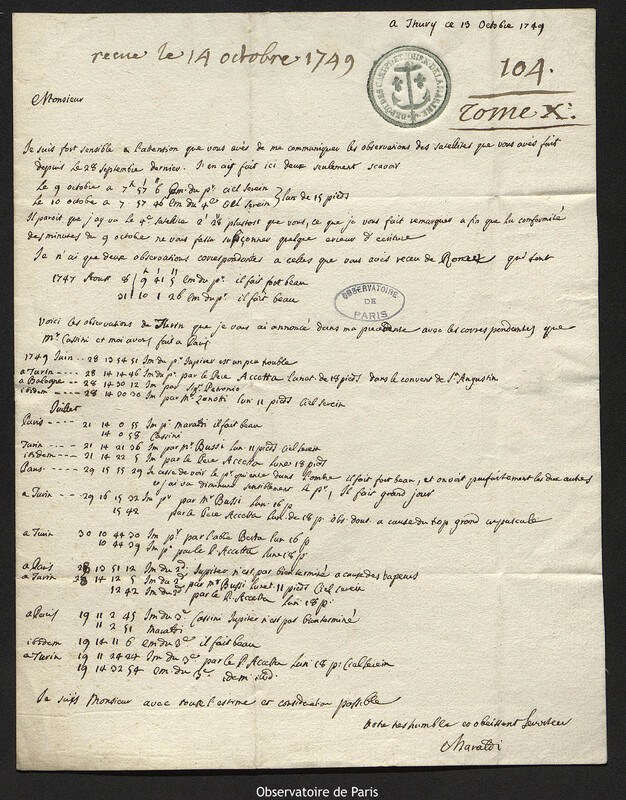 A Thury ce 13 Octobre 1749
recue le 14 octobre 1749
104.
Tome X.
Monsieur
Je suis fort sensible a l'attention que vous avés de me communiquer les observations des satellites que vous avés fait
depuis le 28 septembre dernier. J'en ait fait ici deux seulement scavoir
Le 9 octobre a 7h 57' 6" Em. du pr. ciel serein
Le 10 octobre a 7 57 46 Em du 4e Ciel serein } lun. de 15 pieds
Il paroit que j'ay vu le 4e satellite 2' 28 plustost que vous, ce que je vous fait remarquer a fin que la conformité
des minutes du 9 octobre ne vous fasse supçonner quelque erreur d'ecriture
Je n'ai que deux observations correspondantes a celles que vous avés receu de qui sont
1747 Aoust 8 9h 41' 5" em du pr. il fait fort beau
21 10 1 26 em du pr. il fait beau
OBSERVATOIRE
DE
PARIS
Voici les observations de Turin que je vous ai annoncé dans ma precedente avec les correspondentes que
Mr Cassini et moi avons fait a Paris
1749 Juin -- 28 13 54 51 Im du pr. Jupiter est un peu trouble
a Turin ---- 28 14 14 46 Im du pr. par le Pere Accetta lunet. de 18 pieds dans le convent de St Augustin
a Bologne ---- 28 14 30 12 Im par Petronio
ibidem ---- 28 14 30 30 Im par Mr Zanotti lun 11 pieds Ciel serein
Juillet
Paris ---- 21 14 0 55 Im pr. Maraldi il fait beau
14 0 58 Cassini
Turin ---- 21 14 21 36 Im par Mr Bussi lun. 11 pieds Ciel serein
ibidem ---- 21 14 22 5 Im par le Pere Accetta lunet 18 pieds
Paris ---- 29 15 15 29 Je cesse de voir le pr. qui entre dans l'ombre il fait fort beau, et on voit parfaitement les deux autres
et j'ai vu diminuer sensiblement le pr., Il fait grand jour
a Turin ---- 29 16 15 32 Im pr par Mr Bussi lun. 16 p
15 42 par le Pere Accetta lun. de 18 p. obs. dout. a cause du trop grand crepuscule
a Turin 30 10 44 30 Im pr. par l'abbé Berta lun 16 p
10 44 39 Im pr. par le P. Accetta lun. 18 p.
a Paris 28 13 51 12 Im du 2d. Jupiter n'est pas bien terminé a cause des vapeurs
a Turin 28 14 12 5 Im du 2d par Mr Bussi lunet. 11 pieds Ciel serein
12 42 Im du 2d par le P. Accetta lun. 18 p.
a Paris 19 11 2 45 Im du 3e Cassini Jupiter n'est pas bien terminé
11 2 51 Maraldi
ibidem 19 14 11 6 em du 3e il fait beau
a Turin 19 11 24 24 Im du 3e par le P. Accetta lun. 18 p. Ciel serein
19 14 32 54 em du 3e idem
Je suis Monsieur avec toute l'estime et consideration possible
Votre tres humble et obeissant serviteur
Maraldi
Observatoire de Paris